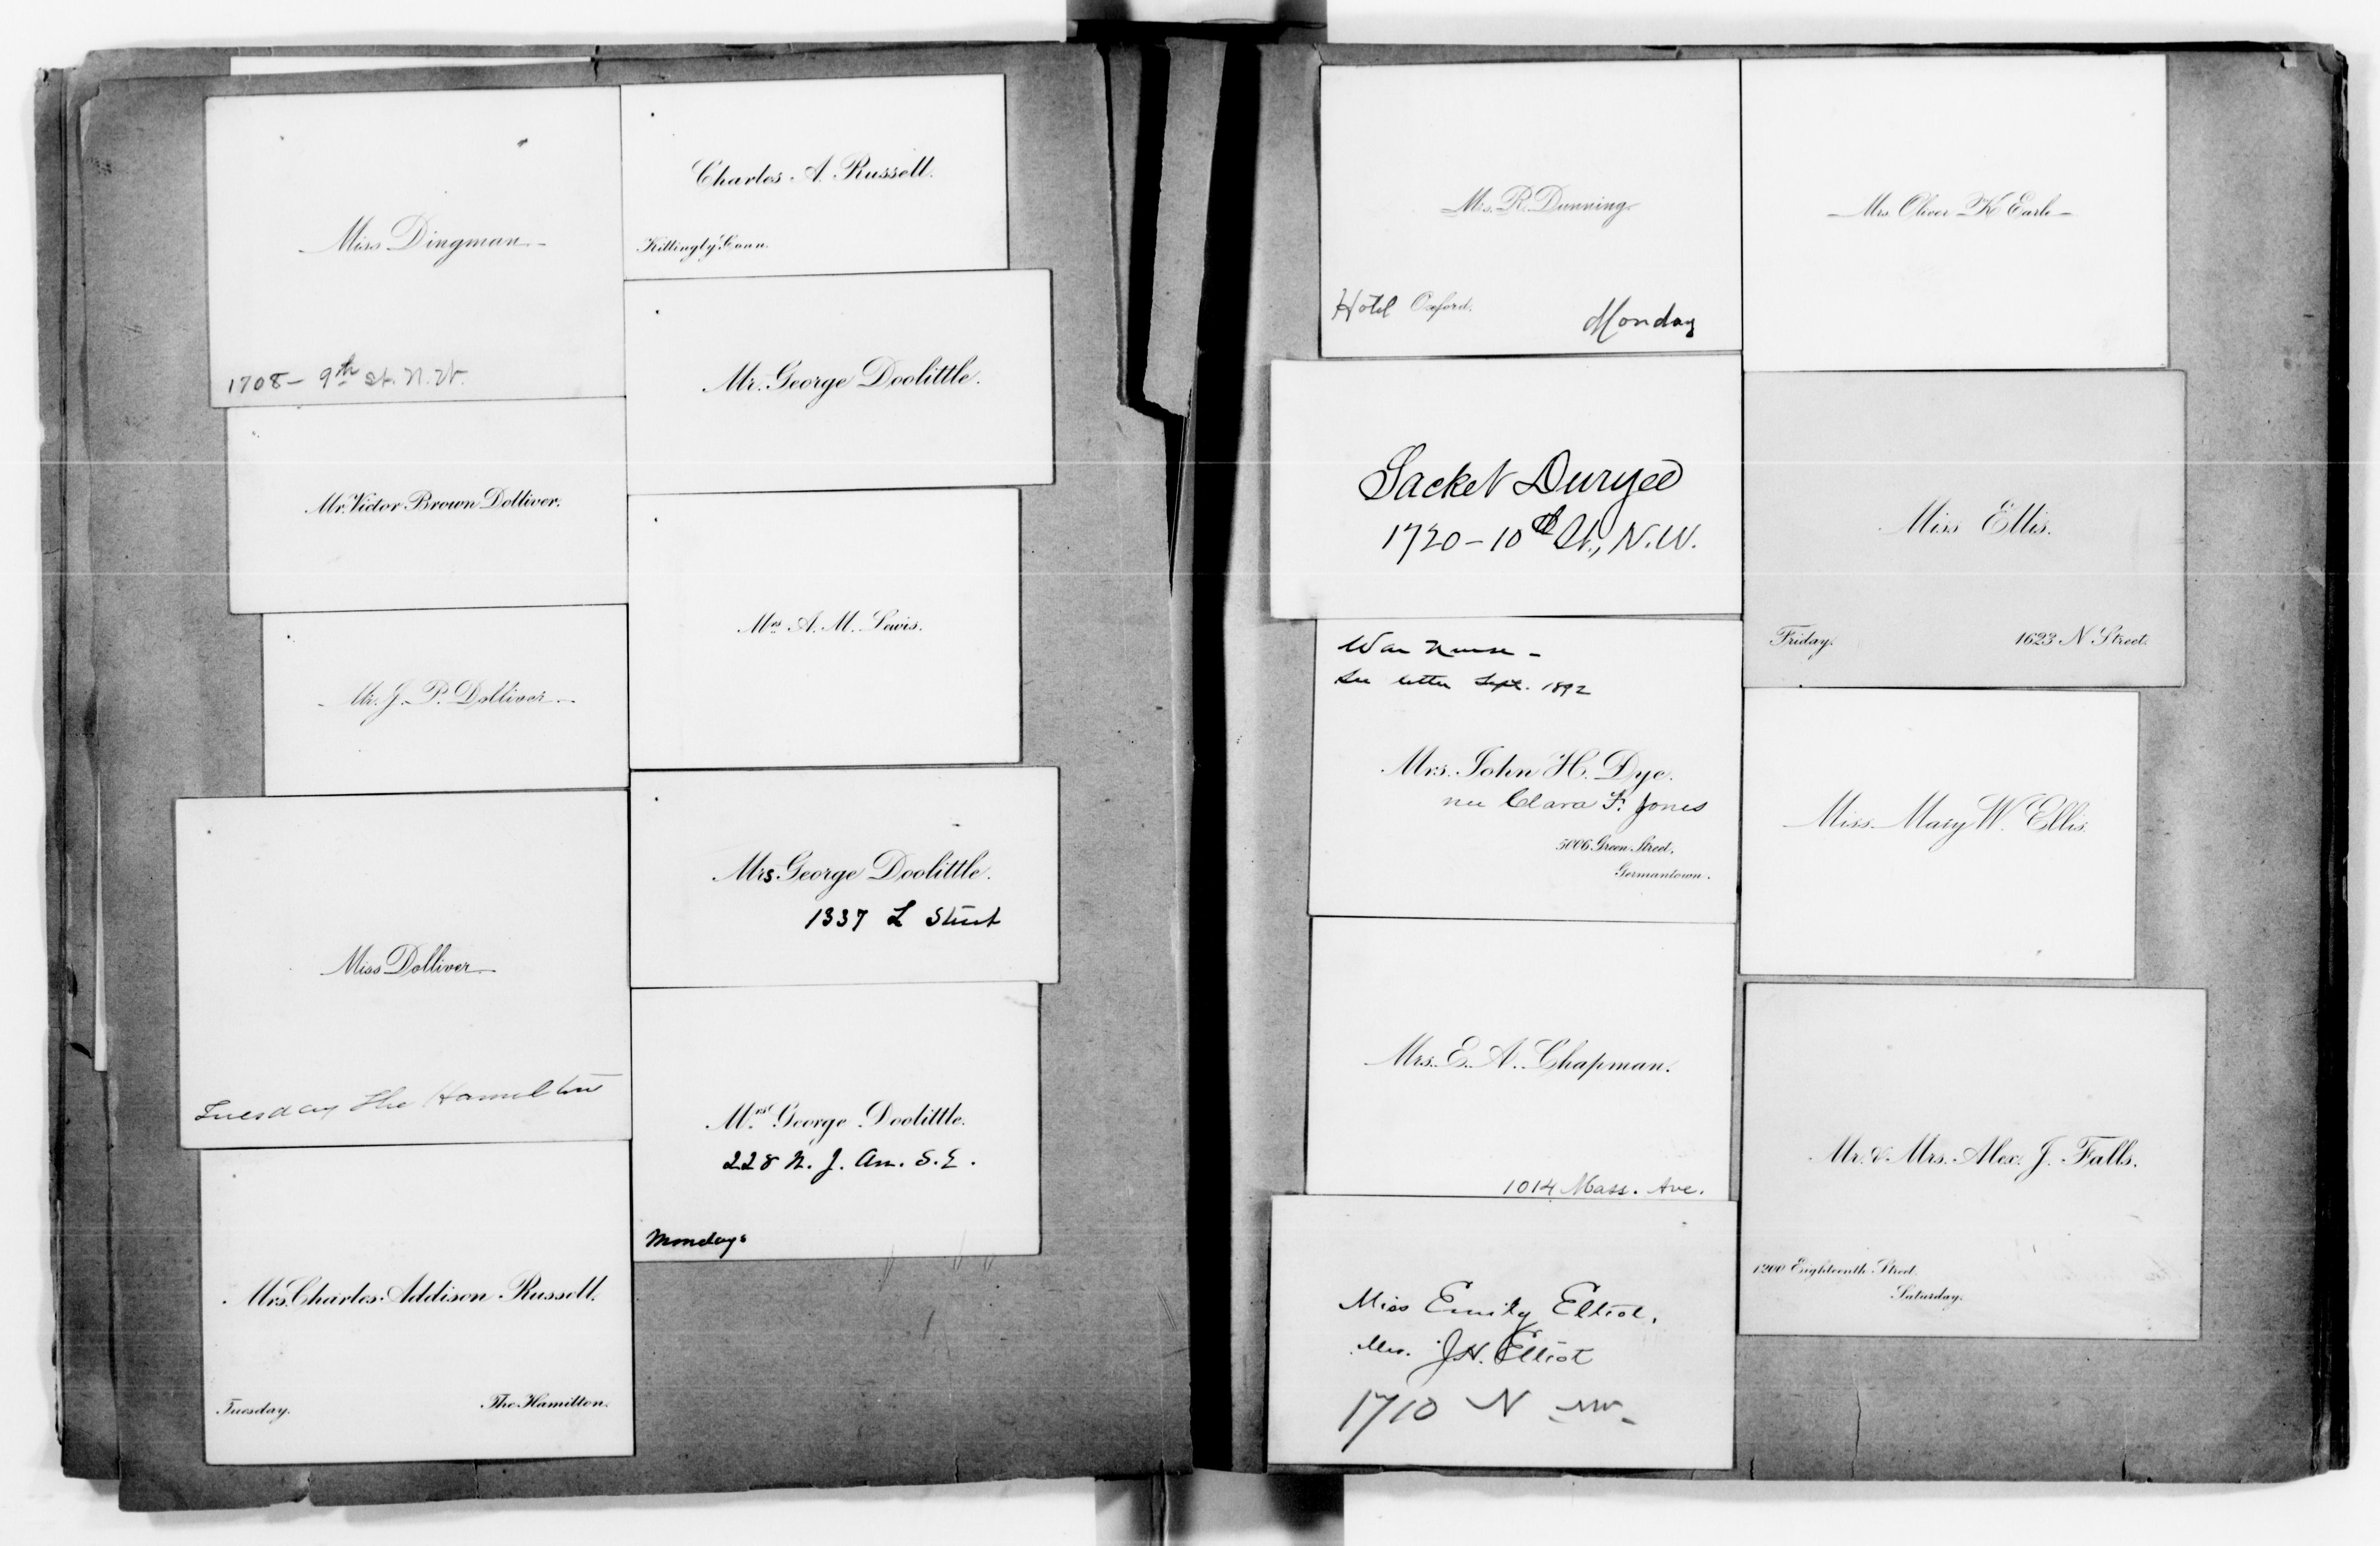 Miss Dingman
1708 – 9th St. N.W.
Mr. Victor Brown Dolliver.
Mr. J. P. Dolliver
Miss Dolliver
Tuesday The Hamilton
Mrs. Charles Addison Russell.
Tuesday.
The Hamilton.
Charles A. Russell.
Killingly, Conn.
Mr. George Doolittle.
Mrs. A. M. Lewis.
Mrs. George Doolittle.
1337 L Street
Mrs. George Doolittle.
228 N. J. Av. S. E.
Mondays
Mrs. R. Dunning
Hotel Oxford.
Monday
Sacket Duryee
1720 – 10th St., N.W.
War Nurse –
See letter Sept. 1892
Mrs. John H. Dye.
nee Clara F. Jones
5006 Green Street,
Germantown.
Mrs. E. A. Chapman.
1014 Mass. Ave.
Miss Emily Elliot.
Mrs. J. H. Elliot
1710 N NW
Mrs. Oliver K. Earle
Miss Ellis.
Friday.
1623 N Street.
Miss Mary W. Ellis.
Mr. & Mrs. Alex. J. Falls.
1200 Eighteenth Street.
Saturday.